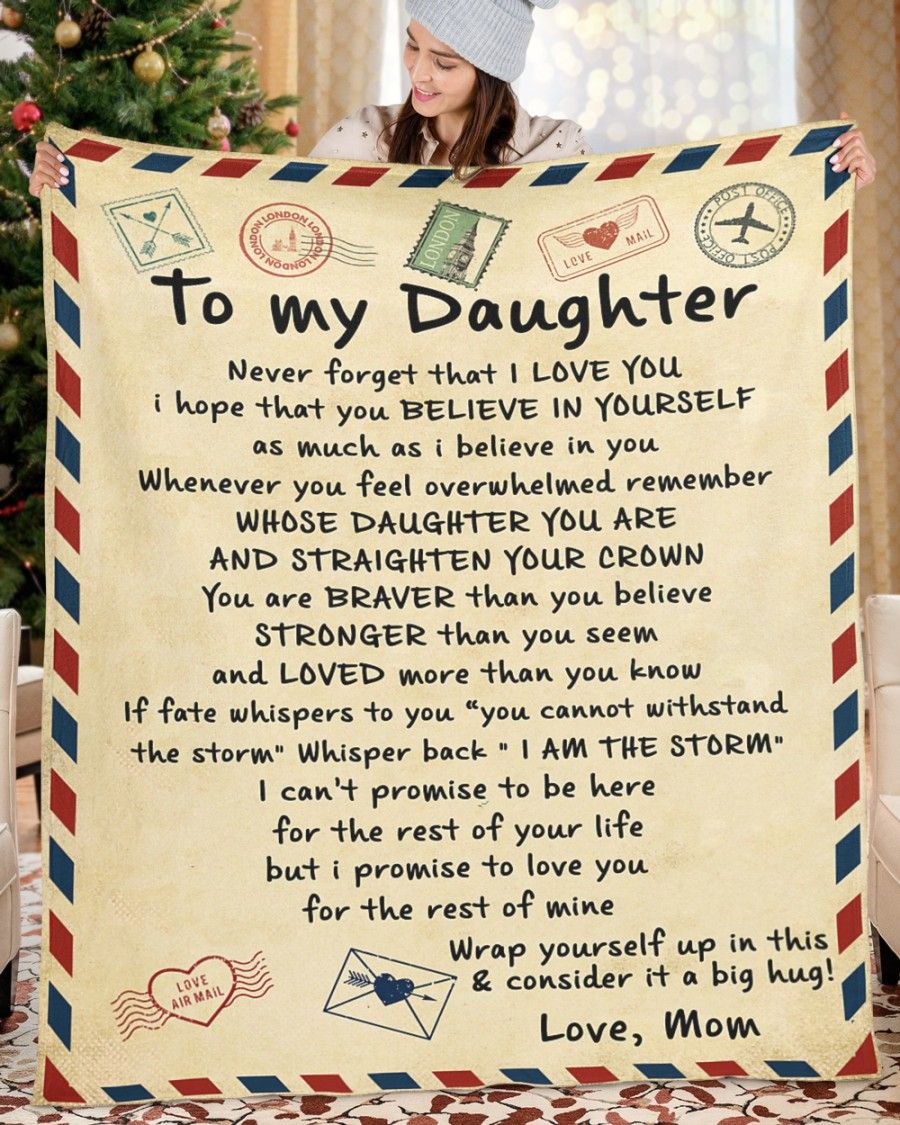 LONDON LONDON LONDON LONDON
LONDON
LOVE MAIL
POST OFFICE POST OFFICE
To my Daughter
Never forget that I LOVE YOU
i hope that you BELIEVE IN YOURSELF
as much as i believe in you
Whenever you feel overwhelmed remember
WHOSE DAUGHTER YOU ARE
AND STRAIGHTEN YOUR CROWN
You are BRAVER than you believe
STRONGER than you seem
and LOVED more than you know
If fate whispers to you “you cannot withstand
the storm" Whisper back " I AM THE STORM"
I can't promise to be here
for the rest of your life
but i promise to love you
for the rest of mine
Wrap yourself up in this
& consider it a big hug!
Love, Mom
LOVE
AIR MAIL